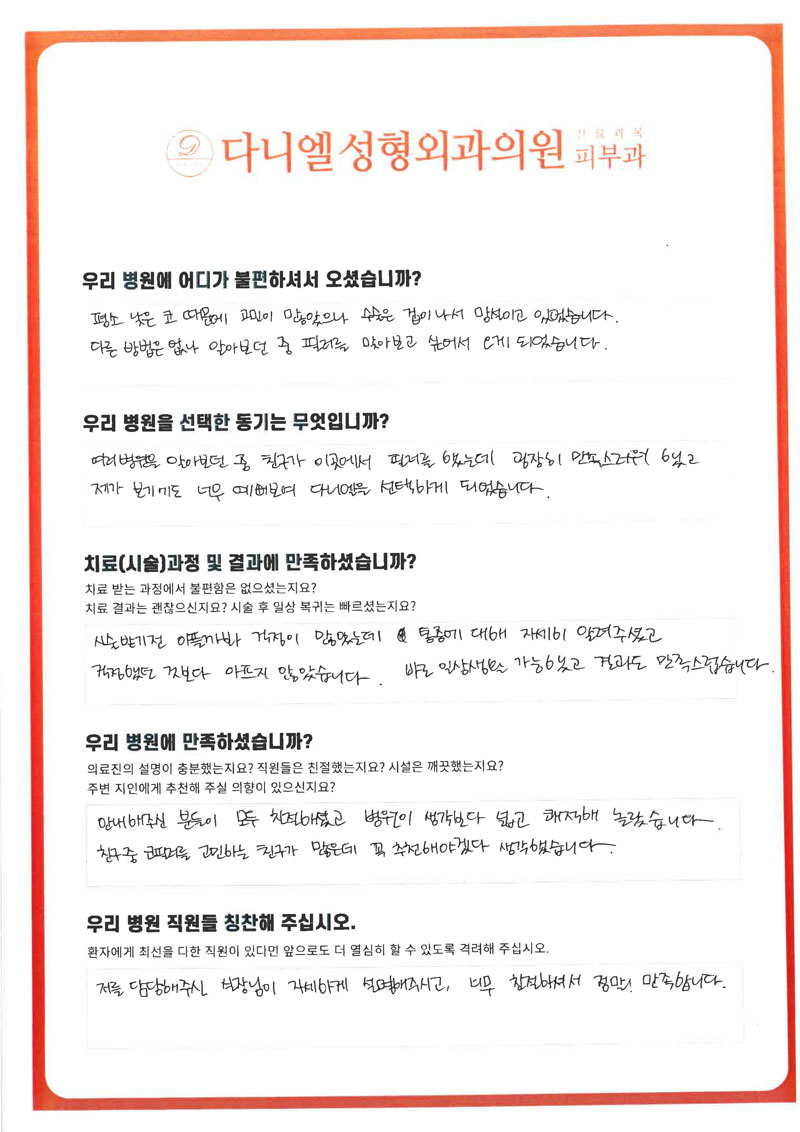 다니엘성형외과의원 진료과목 피부과
우리 병원에 어디가 불편하셔서 오셨습니까?
평소 낮은 코 때문에 고민이 많았으나 수술은 겁이나서 망설이고 있었습니다.
다른 방법은 없나 알아보던 중 필러를 맞아보고 싶어서 오게 되었습니다.
우리 병원을 선택한 동기는 무엇입니까?
여러병원을 알아보던 중 친구가 이곳에서 필러를 했는데 굉장히 만족스러워 했고
제가 보기에도 너무 예뻐보여 다니엘을 선택하게 되었습니다.
치료(시술)과정 및 결과에 만족하셨습니까?
치료 받는 과정에서 불편함은 없으셨는지요?
치료 결과는 괜찮으신지요? 시술 후 일상 복귀는 빠르셨는지요?
시술받기전 아플까봐 걱정이 많았는데 통증에 대해 자세히 알려주셨고
걱정했던 것보다 아프지 않았습니다. 바로 일상생활 가능했고 결과도 만족스럽습니다.
우리 병원에 만족하셨습니까?
의료진의 설명이 충분했는지요? 직원들은 친절했는지요? 시설은 깨끗했는지요?
주변 지인에게 추천해 주실 의향이 있으신지요?
안내해주신 분들이 모두 친절하셨고 병원이 생각보다 넓고 쾌적해 놀랐습니다.
친구중 코필러를 고민하는 친구가 많은데 꼭 추천해야겠다 생각했습니다.
우리 병원 직원들 칭찬해 주십시오.
환자에게 최선을 다한 직원이 있다면 앞으로도 더 열심히 할 수 있도록 격려해 주십시오.
저를 담당해주신 실장님이 자세하게 설명해주시고, 너무 친절하셔서 정말 만족합니다.